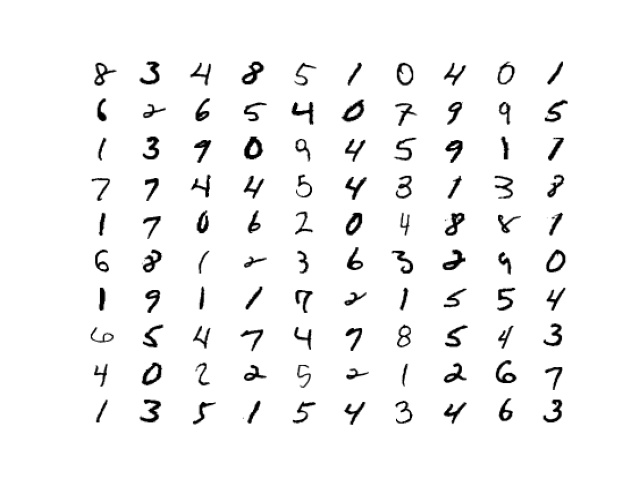 8 3 4 8 5 1 0 4 0 1
6 2 6 5 4 0 7 9 9 5
1 3 9 0 9 4 5 9 1 7
7 7 4 4 5 4 3 1 3 8
1 7 0 6 2 0 4 8 8 1
6 8 1 2 3 6 3 2 9 0
1 9 1 1 7 2 1 5 5 4
6 5 4 7 4 7 8 5 4 3
4 0 2 2 5 2 1 2 6 7
1 3 5 1 5 4 3 4 6 3